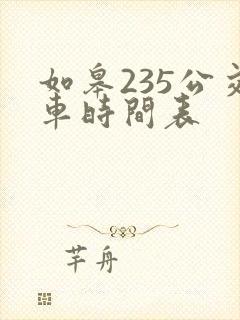 如皋235公交
車時間表
芊舟